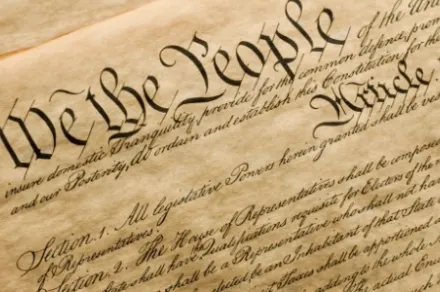 We the People of the Un
insure domestic Tranquility, provide for the common defence, prom
and our Posterity, do ordain and establish this Constitution for the
Article
Section 1. All legislative Powers herein granted shall be ves
of Representatives.
Section 2. The House of Representatives shall be compose
shall have Qualifications requisite for Electors of the
shall be a Representative who shall not ha
elected, be an Inhabitant of that State
Taxes shall be apportioned
adding to the whole
The actual Enu